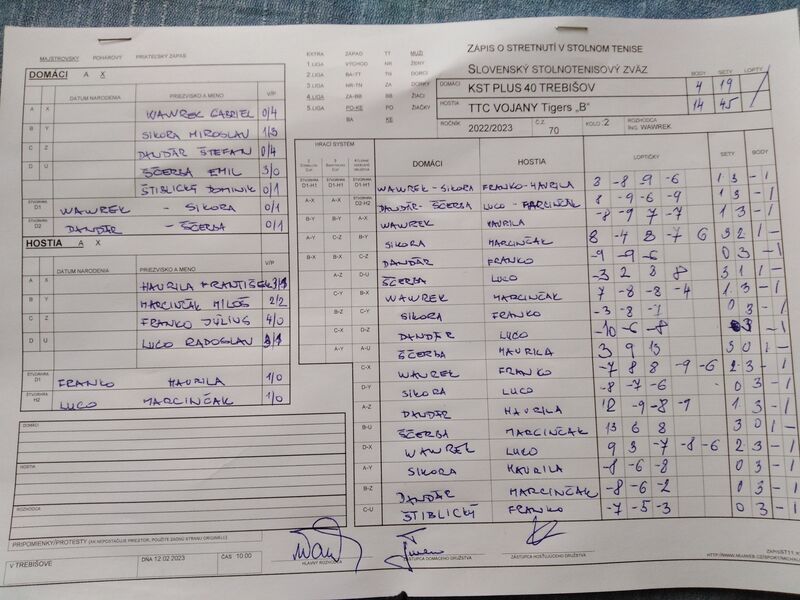 MAJSTROVSKÝ POHÁROVÝ PRIATEĽSKÝ ZÁPAS
DOMÁCI A X
DATUM NARODENIA PRIEZVISKO A MENO V/P
A X WAWREK GABRIEL 0/4
B Y SIKORA MIROSLAV 1/3
C Z DANDÁR ŠTEFAN 0/4
D U ŠČERBA EMIL 3/0
ŠTIBLICKÝ DOMINIK 0/1
ŠTVORHRA D1 WAWREK - SIKORA 0/1
ŠTVORHRA D2 DANDÁR - ŠČERBA 0/1
HOSTIA A X
DATUM NARODENIA PRIEZVISKO A MENO V/P
A X HAVRILA FRANTIŠEK 3/1
B Y MARCINČÁK MILOŠ 2/2
C Z FRANKO JÚLIUS 4/0
D U LUCO RADOSLAV 3/1
ŠTVORHRA D1 FRANKO HAVRILA 1/0
ŠTVORHRA H2 LUCO MARCINČAK 1/0
DOMÁCI
HOSTIA
ROZHODCA
PRIPOMIENKY/PROTESTY (AK NEPOSTAČUJE PRIESTOR, POUŽITE ZADNÚ STRANU ORIGINÁLU)
V TREBIŠOVE DŇA 12.02.2023 ČAS 10:00
HLAVNÝ ROZHODCA
ZÁSTUPCA DOMÁCEHO DRUŽSTVA
ZÁSTUPCA HOSŤUJÚCEHO DRUŽSTVA
EXTRA ZÁPAD TT MUŽI
1.LIGA VÝCHOD NR ŽENY
2.LIGA BA-TT TN DORCI
3.LIGA NR-TN ZA DORKY
4.LIGA ZA-BB BB ŽIACI
5.LIGA PO-KE PO ŽIAČKY
BA KE
ZÁPIS O STRETNUTÍ V STOLNOM TENISE
SLOVENSKÝ STOLNOTENISOVÝ ZVÄZ
BODY SETY LOPTY
DOMÁCI KST PLUS 40 TREBIŠOV 4 19
HOSTIA TTC VOJANY Tigers „B“ 14 45
ROČNÍK 2022/2023 Č.Z. 70 KOLO :2 ROZHODCA ING. WAWREK
HRACÍ SYSTÉM DOMÁCI HOSTIA LOPTIČKY SETY BODY
ŠTVORHRA D1-H1 WAWREK - SIKORA FRANKO-HAVRILA 3 -8 -9 -6 1 3 - 1
A-X A-X ŠTVORHRA D2-H2 DANDÁR- ŠČERBA LUCO - MARCINČÁK 8 -9 -6 -9 1 3 - 1
B-Y B-Y A-X WAWREK HAVRILA -8 -9 7 -7 1 3 - 1
A-Y C-Z B-Y SIKORA MARCINČAK 8 -4 8 -7 6 3 2 1 -
B-X B-X C-Z DANDÁR FRANKO -9 -9 -6 0 3 - 1
A-Z D-U ŠČERBA LUCO -3 2 8 8 3 1 1 -
C-Y B-X WAWREK MARCINČAK 7 -8 -8 -4 1 3 - 1
B-Z C-Y SIKORA FRANKO -3 -8 -7 0 3 - 1
C-X D-Z DANDÁR LUCO -10 -6 -8 0 3 - 1
A-Y A-U ŠČERBA HAVRILA 3 9 13 3 0 1 -
C-X WAWREK FRANKO -7 8 8 -9 -6 2 3 - 1
D-Y SIKORA LUCO -8 -7 -6 0 3 - 1
A-Z DANDÁR HAVRILA 12 -9 -8 -9 1 3 - 1
B-U ŠČERBA MARCINČAK 13 6 8 3 0 1 -
D-X WAWREK LUCO 9 3 -7 -8 -6 2 3 - 1
A-Y SIKORA HAVRILA -8 -6 -8 0 3 - 1
B-Z DANDÁR MARCINČAK -8 -6 -2 0 3 - 1
C-U ŠTIBLICKÝ FRANKO -7 -5 -3 0 3 - 1